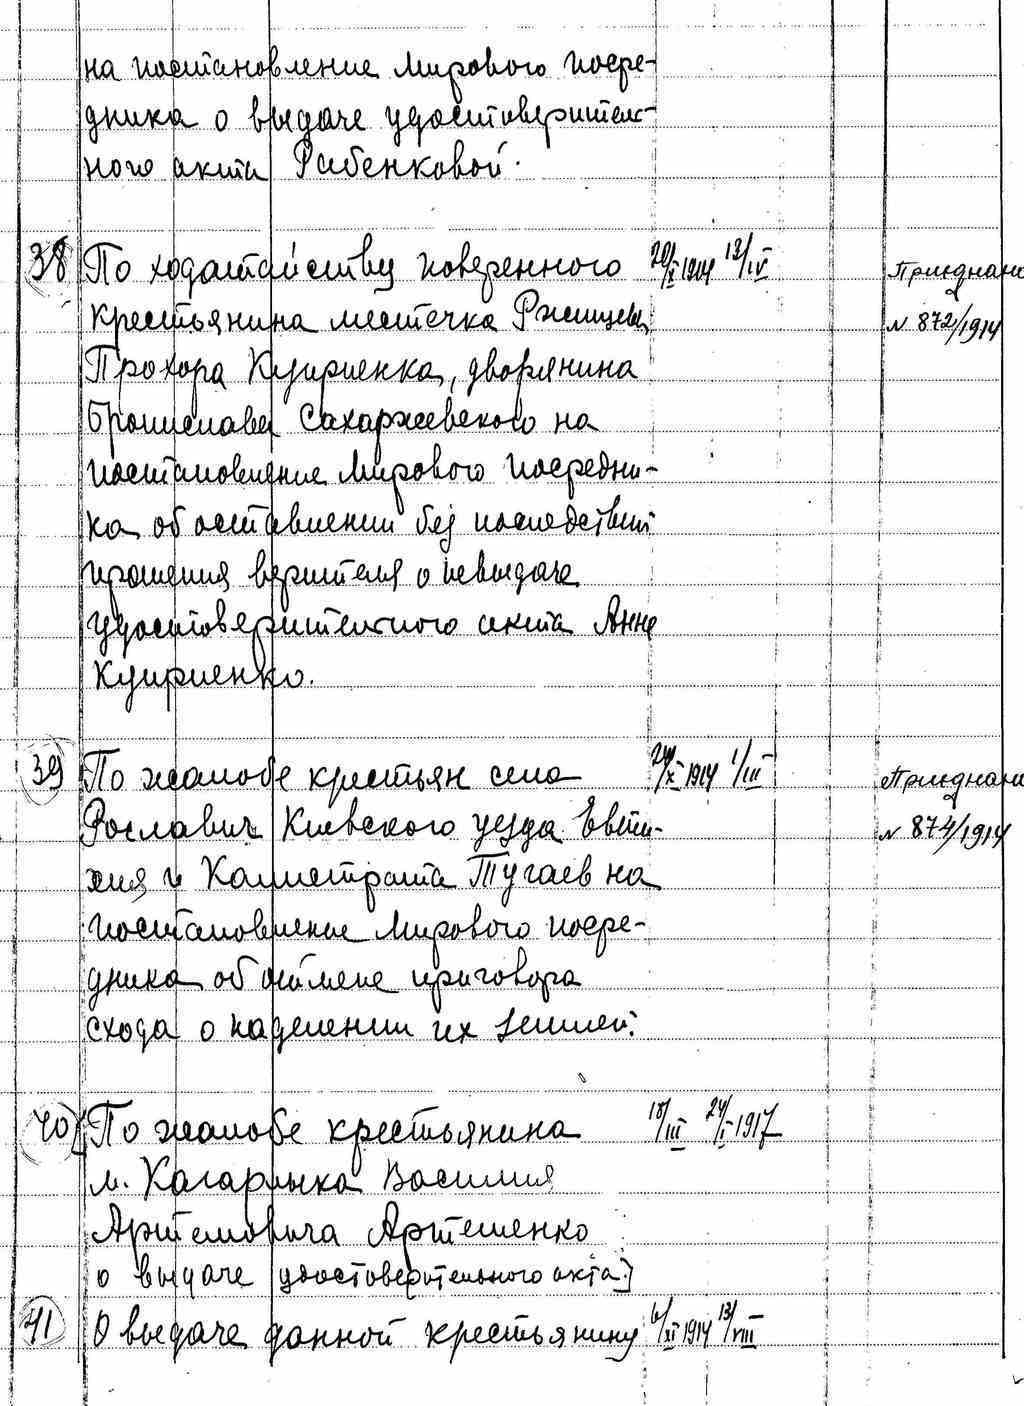 на постановление Мирового посре-
дника о выдаче удостоверитель-
ного акта Рабенковой.
38 По ходатайству поверенного 20/X 1914 12/IV Приєднана
крестьянина местечка Ржищева № 872/1914
Прохора Куприенка, дворянина
Бронислава Сахаржевского на
постановление Мирового посредни-
ка об оставлении без последствий
прошения верителя о невыдаче
удостоверительного акта Анне
Куприенко.
39 По жалобе крестьян села 24/XI 1914 1/III Приєднана
Рославич Киевского уезда Евти- № 874/1914
хия и Калистрата Тугаев на
постановление Мирового посре-
дника об отмене приговора
схода о наделении их землей.
40 По жалобе крестьянина 18/III 24/I 1917
м. Кагарлыка Василия
Артемовича Артеменко
о выдаче [удостоверительного акта.]
41 О выдаче данной крестьянину 6/XI 1914 13/VIII